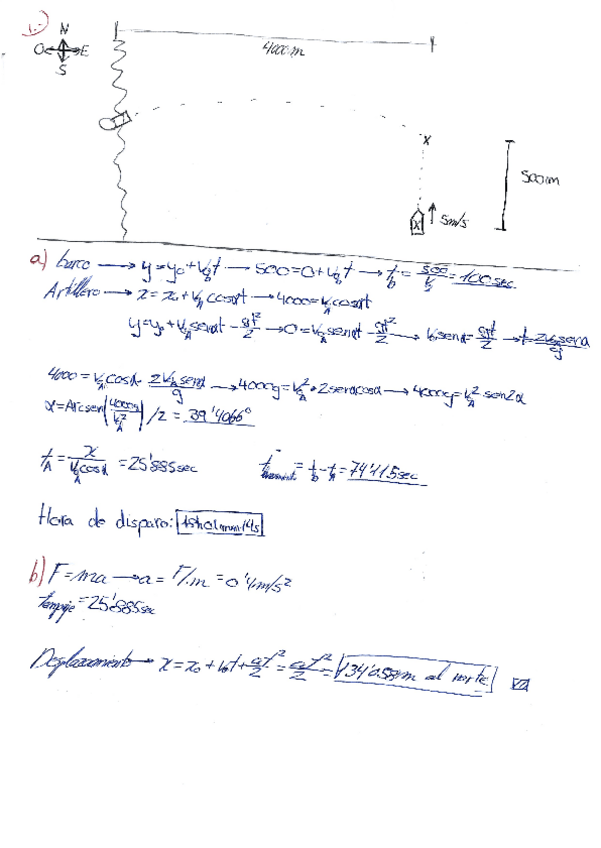 1.
N
O E
S
4000m
x
500m
x 5m/s
a) barco → y=y₀+V₀t → 500=0+V₀t → t_b = 500/V_b = 100 sec.
Artillero → x=x₀+V_A cosαt → 4000=V_A cosαt
y=y₀+V_A senαt - gt²/2 → 0=V_A senαt - gt²/2 → V_A senα = gt/2 → t = 2V_A senα/g
4000 = V_A cosα · 2V_A senα/g → 4000g=V_A² · 2senαcosα → 4000g=V_A² sen2α
α=Arcsen(4000g/V_A²)/2 = 39'4065°
t_A = x/V_A cosα = 25'885 sec = t_b - t_A = 74'115 sec
Hora de disparo: 15h01min14s
b) F=ma → a = F/m = 0'4m/s²
t = 25'885 sec
Desplazamiento → x = x₀ + V₀t + at²/2 = at²/2 = 134'0.58m al norte